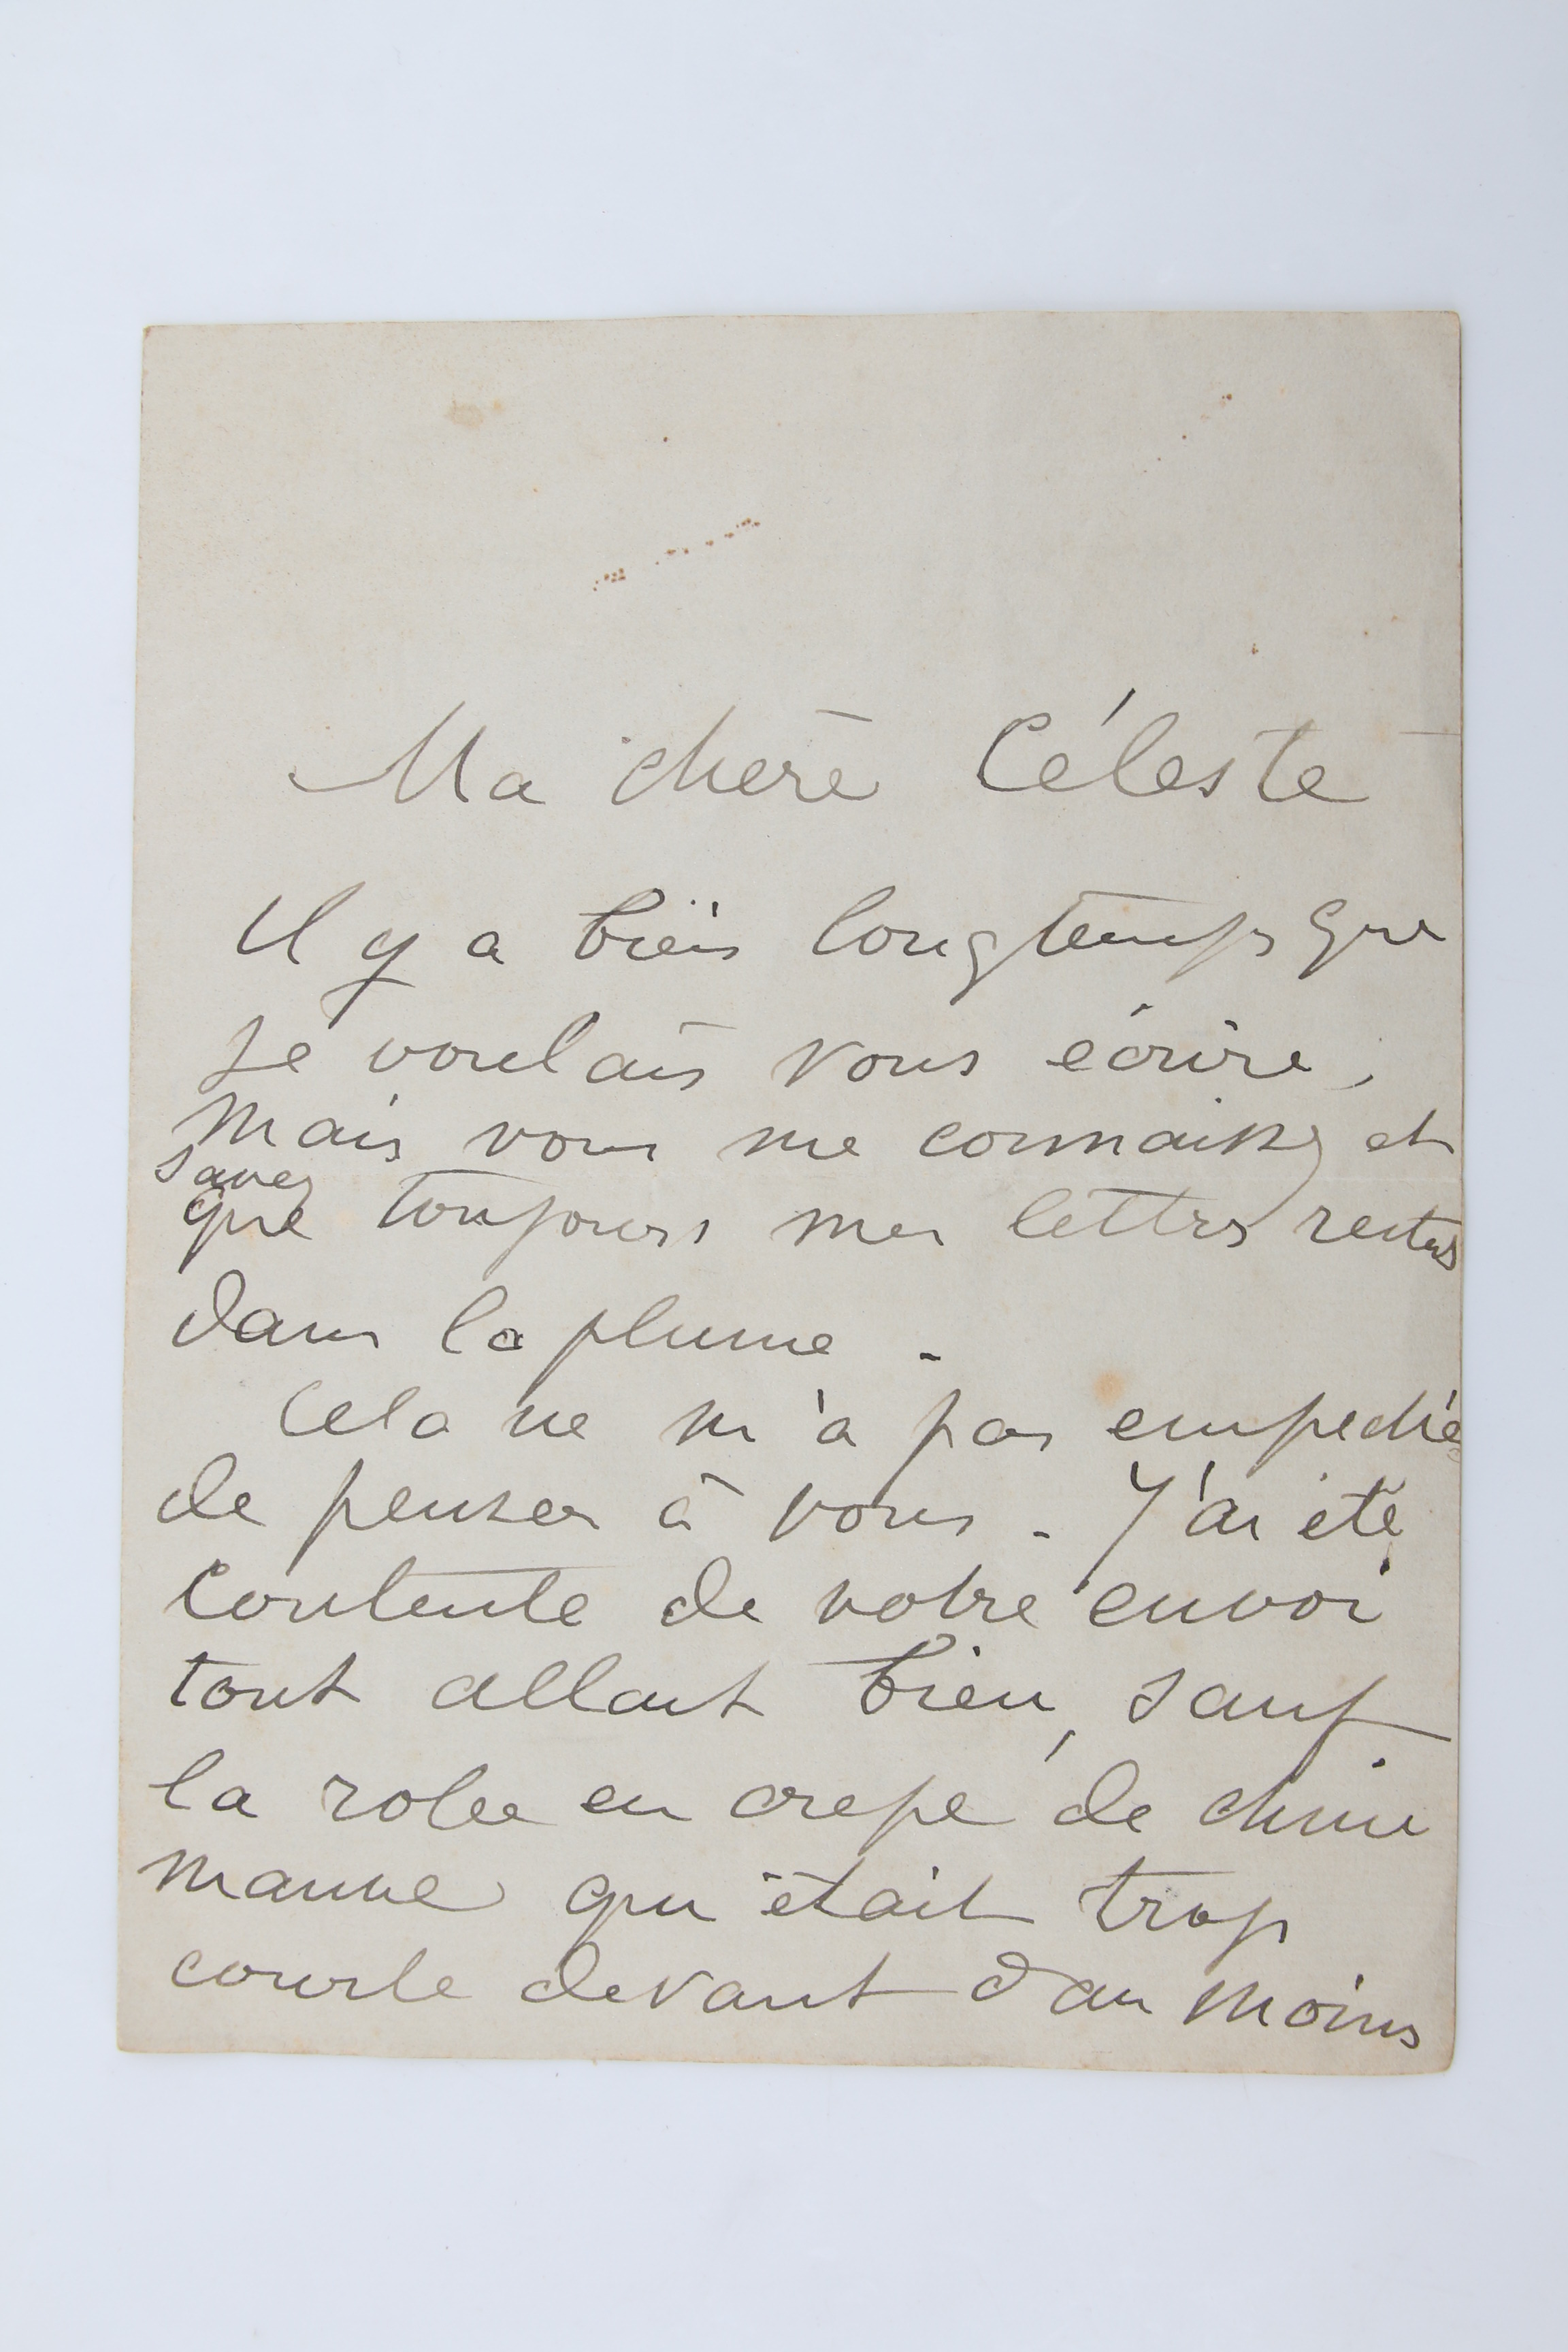 Ma chère Céleste
Il y a bien longtemps que
je voulais vous écrire,
mais vous me connaissez et
savez
que toujours mes lettres restes
dans la plume.
Cela ne m'a pas empeché
de penser à vous. J'ai été
contente de votre envoi
tout allait bien, sauf
la robe en crepe de chine
mauve qui était trop
courte devant d'au moins